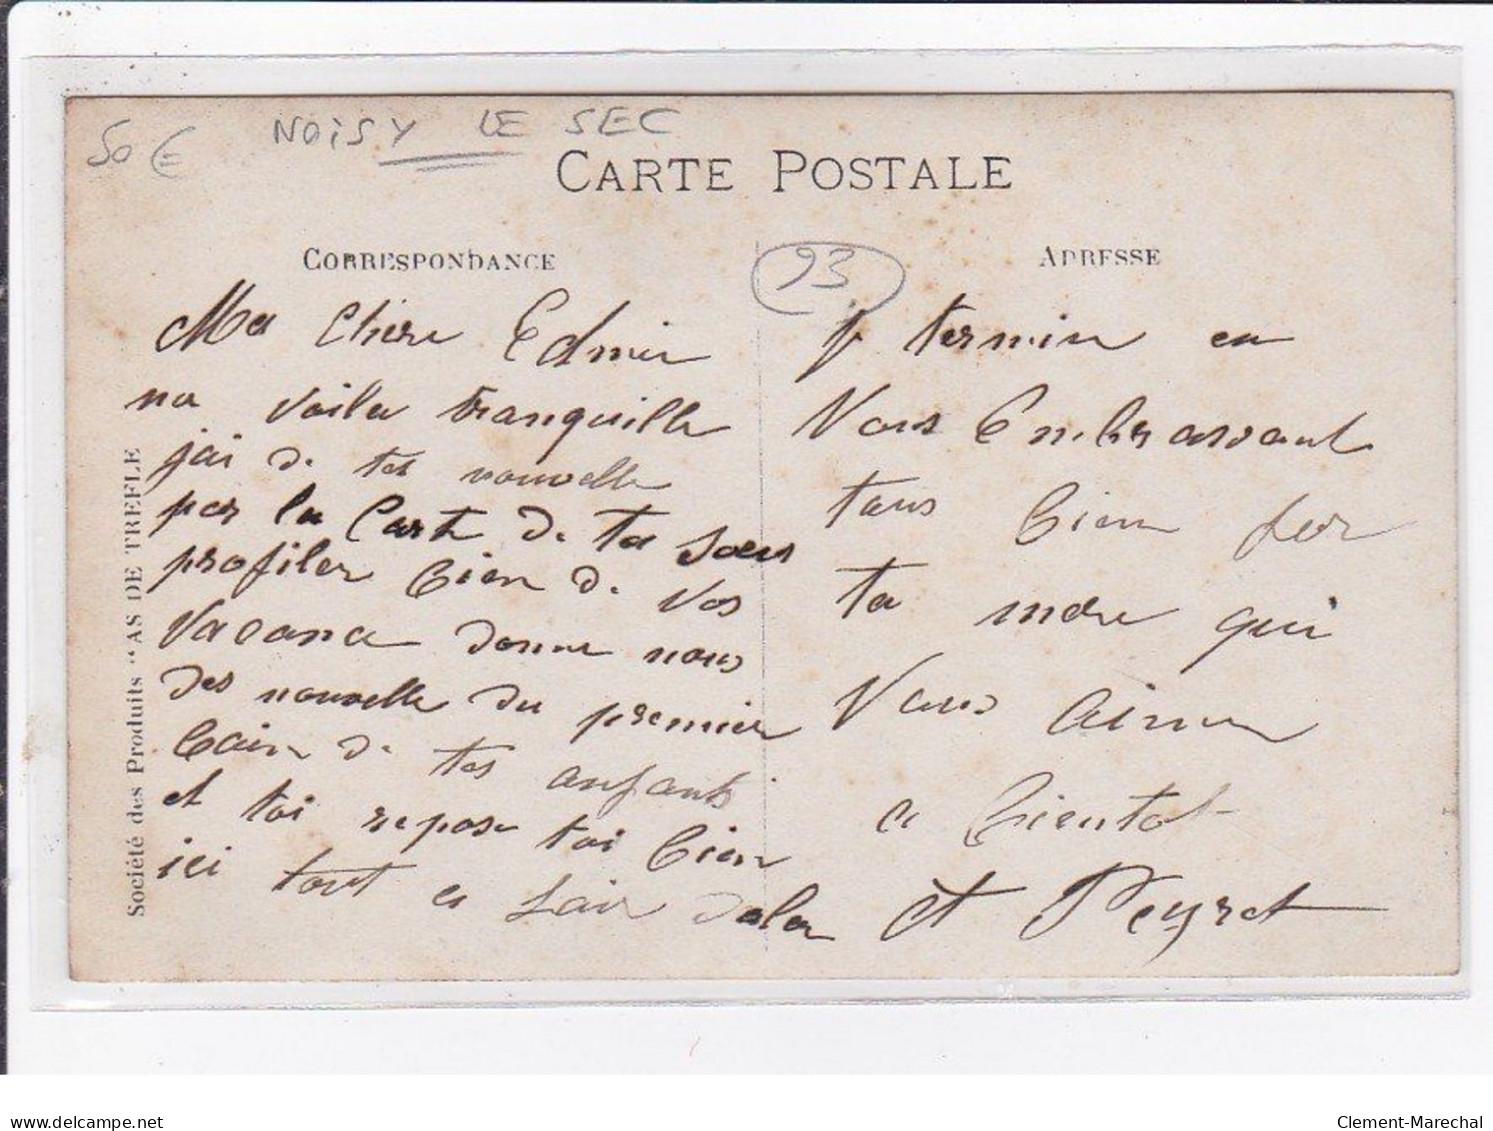 50 € NOISY LE SEC
CARTE POSTALE
CORRESPONDANCE
93
ADRESSE
Ma chere Edmir
na voila tranquille
jai de tes nouvelle
par la Carte de ta soeur
profiler bien de vos
vacance donne nous
des nouvelle du premier
bain de tes anfants
et toi repose toi bien
ici tout a lair daler
je termine en
vous Embrassant
tous bien fer
ta mere qui
vous aime
a bientot
A Peyret
Société des Produits "AS DE TREFLE
www.delcampe.net
Clement-Marechal